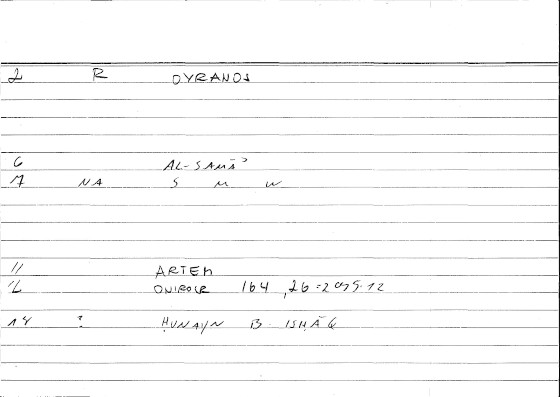 2 R OYRANOS
6 AL-SAMĀʾ
7 NA S M W
11 ARTEM
12 ONIROCR 164,26
14 ? ḤUNAYN B. ISḤĀQ